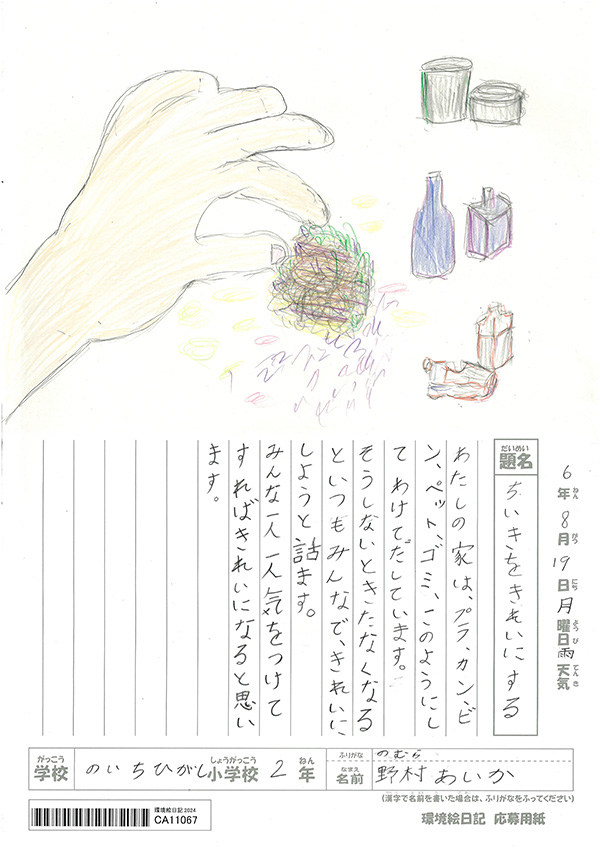 6年8月19日月曜日雨天気
ねん がつ にち ようび てんき
だいめい
題名 ちいきをきれいにする
わたしの家は、プラ、カン、ビ
ン、ペット、ゴミ、このようにし
てわけてだしています。
そうしないときたなくなる
といつもみんなで、きれいに
しようと話ます。
みんな一人一人気をつけて
すればきれいになると思い
ます。
がっこう しょうがっこう ねん
学校 のいちひがし小学校 2年
ふりがな のむら
なまえ
名前 野村あいか
(漢字で名前を書いた場合は、ふりがなをふってください)
環境絵日記2024
CA11067
環境絵日記 応募用紙